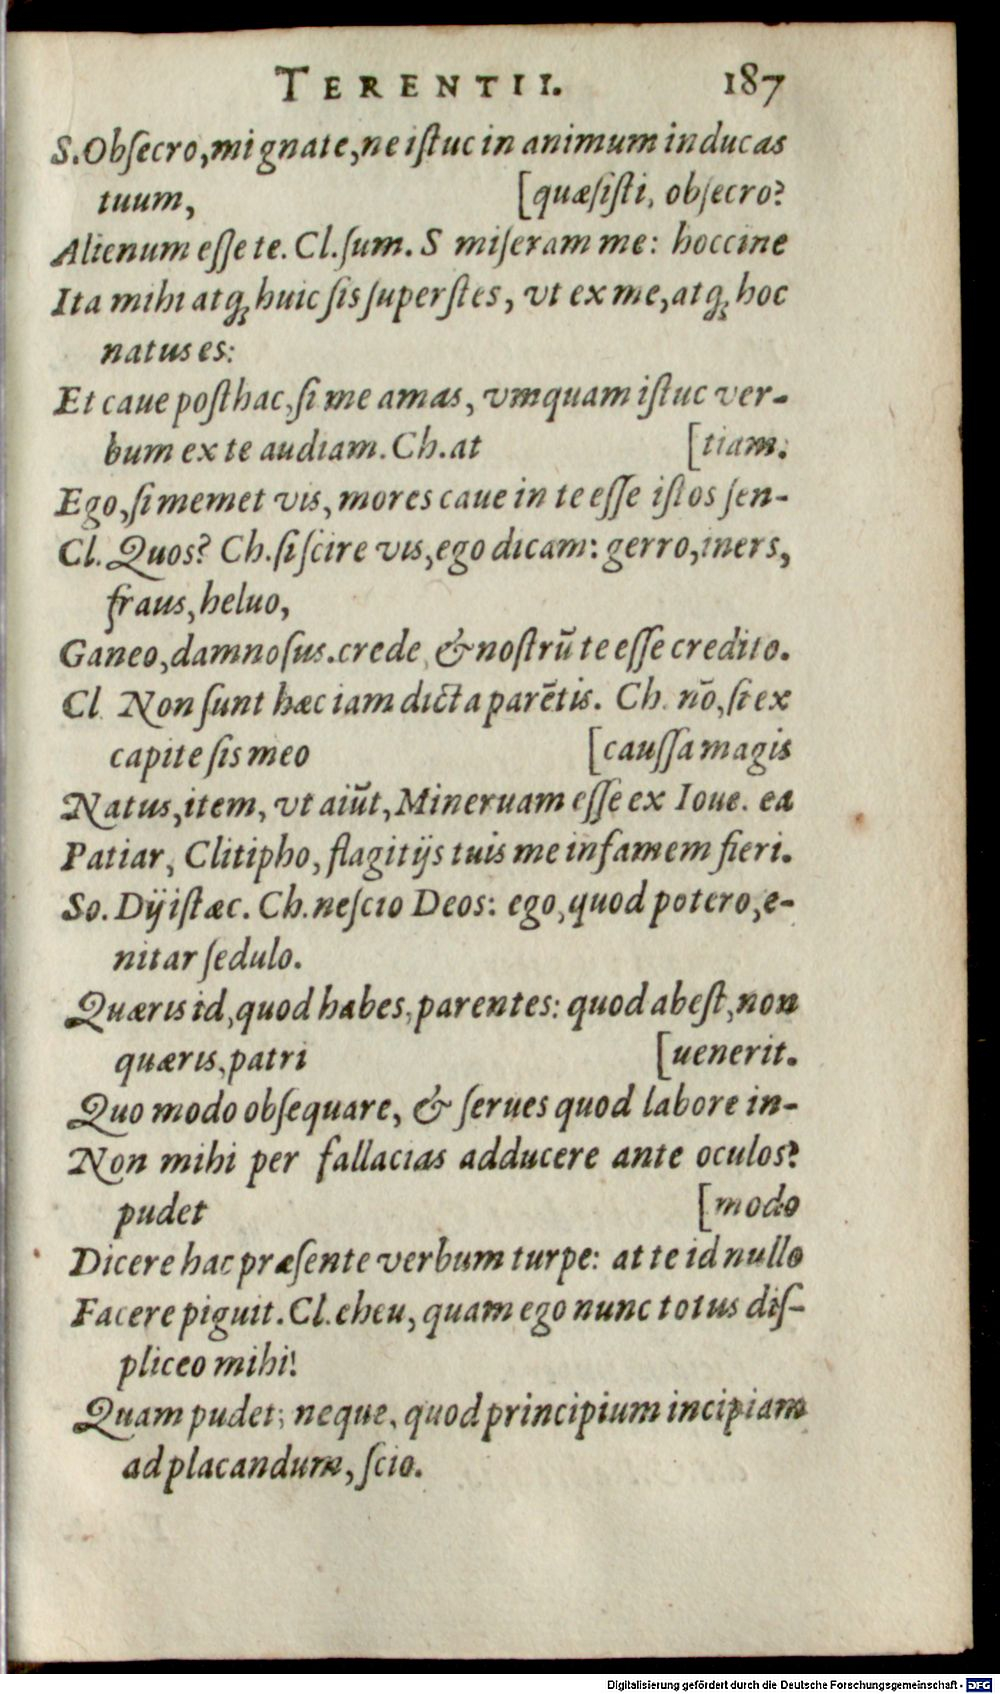 TERENTII. 187
S. Obſecro, mi gnate, ne iſtuc in animum inducas
tuum, [quæſiſti, obſecro?
Alienum eſſe te. Cl. ſum. S miſeram me: hoccine
Ita mihi atq; huic ſis ſuperſtes, vt ex me, atq; hoc
natus es:
Et caue poſthac, ſi me amas, vmquam iſtuc ver-
bum ex te audiam. Ch. at [tiam:
Ego, ſi memet vis, mores caue in te eſſe iſtos ſen-
Cl. Quos? Ch. ſi ſcire vis, ego dicam: gerro, iners,
fraus, heluo,
Ganeo, damnoſus. crede, & noſtrũ te eſſe credito.
Cl. Non ſunt hæc iam dicta parẽtis. Ch. nõ, ſi ex
capite ſis meo [cauſſa magis
Natus, item, vt aiũt, Mineruam eſſe ex Ioue. ea
Patiar, Clitipho, flagitijs tuis me infamem fieri.
So. Dij iſtæc. Ch. neſcio Deos: ego, quod potero, e-
nitar ſedulo.
Quæris id, quod habes, parentes: quod abeſt, non
quæris, patri [uenerit.
Quo modo obſequare, & ſerues quod labore in-
Non mihi per fallacias adducere ante oculos?
pudet [modo
Dicere hac præſente verbum turpe: at te id nullo
Facere piguit. Cl. eheu, quam ego nunc totus diſ-
pliceo mihi!
Quam pudet; neque, quod principium incipiam
ad placandum, ſcio.
Digitalisierung gefördert durch die Deutsche Forschungsgemeinschaft - DFG